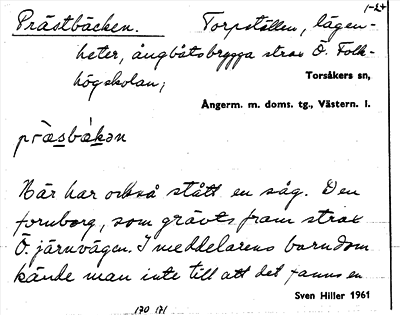 1-24
Prästbäcken. Torpställen, lägen-
heter, ångbåtsbrygga strax Ö. Folk-
högskolan;
Torsåkers sn,
Ångerm. m. doms. tg., Västern. l.
pràsbákən
Här har också stått en såg. Den
fornborg, som grävts fram strax
Ö. järnvägen. I meddelarens barndom
kände man inte till att det fanns en
Sven Hiller 1961
170 171